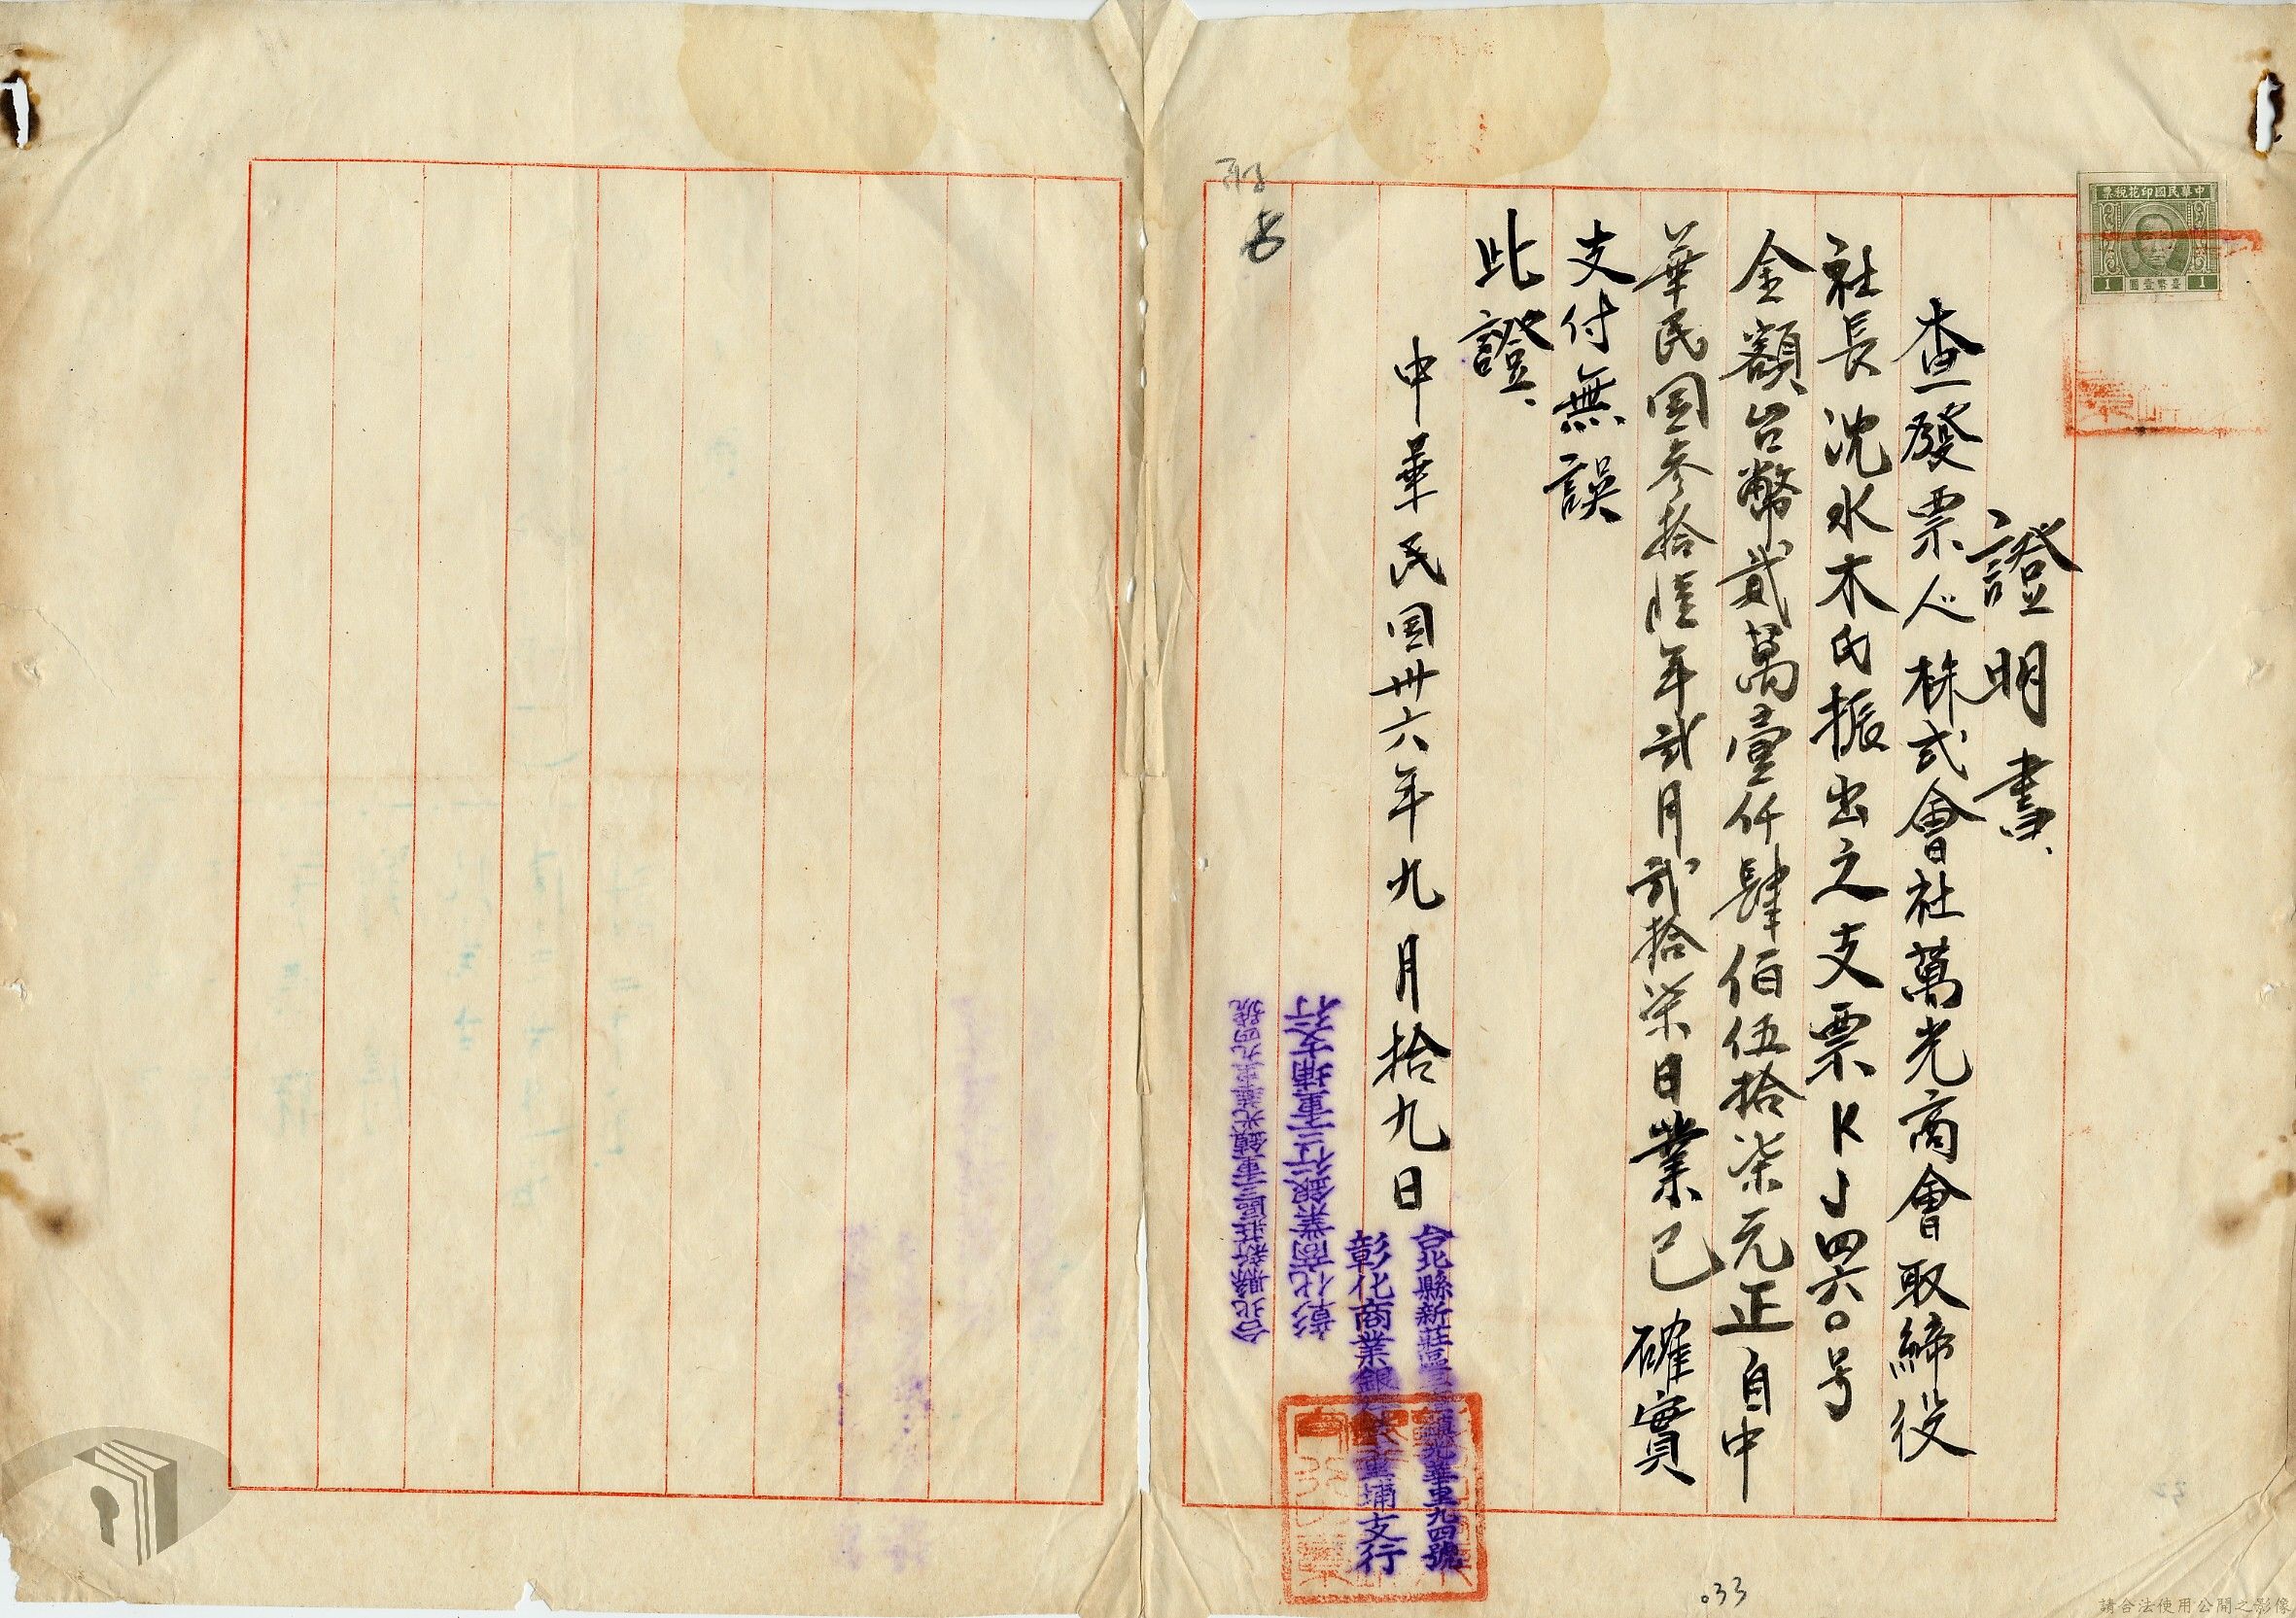 中華民國印花稅票
1 臺幣壹圓 1
證明書
查發票人株式會社萬光商會取締役
社長沈水木氏振出之支票KJ四六〇号
金額台幣貳萬壹仟肆佰伍拾柒元正自中
華民国参拾陸年貳月貳拾柒日業已確實
支付無誤
此證
中華民国卅六年九月拾九日
台北縣新莊區三重鎮光華里九四號
彰化商業銀行三重埔支行
彰化商業銀行三重埔支行
台北縣新莊區三重鎮光華里九四號
033
請合法使用公開之影像